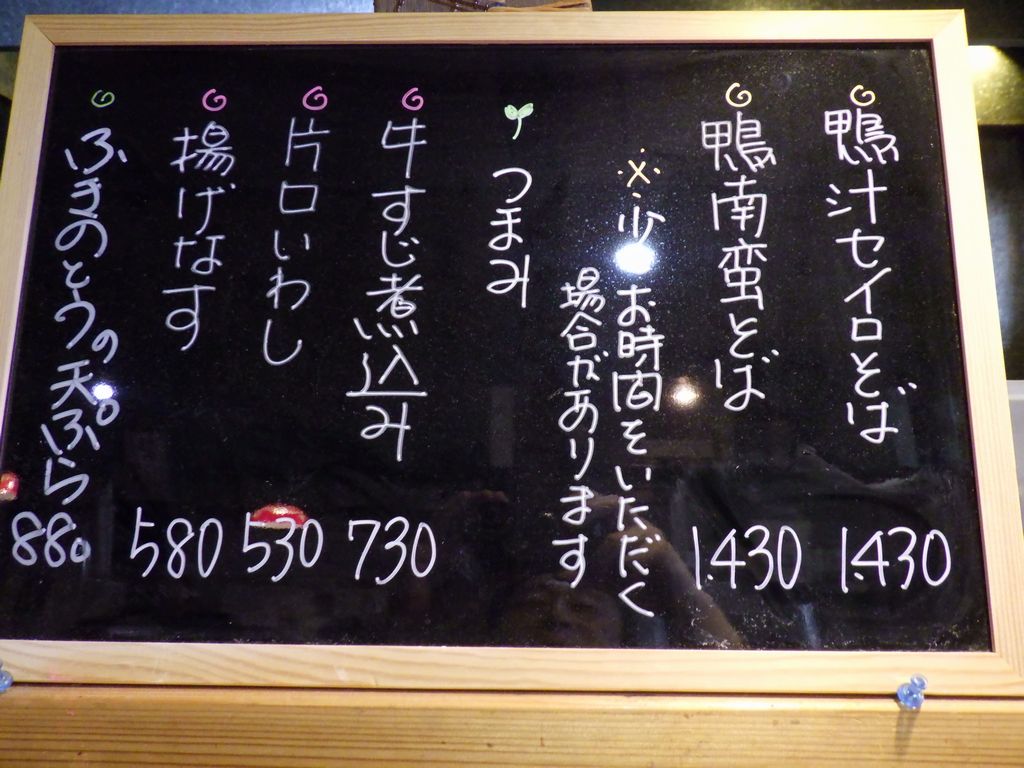 鴨汁セイロそば 1.430
鴨南蛮そば 1.430
※少々お時間をいただく
場合があります
つまみ
牛すじ煮込み 730
片口いわし 530
揚げなす 580
ふきのとうの天ぷら 880